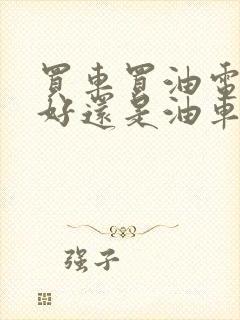 買車買油電
好還是油車
强子